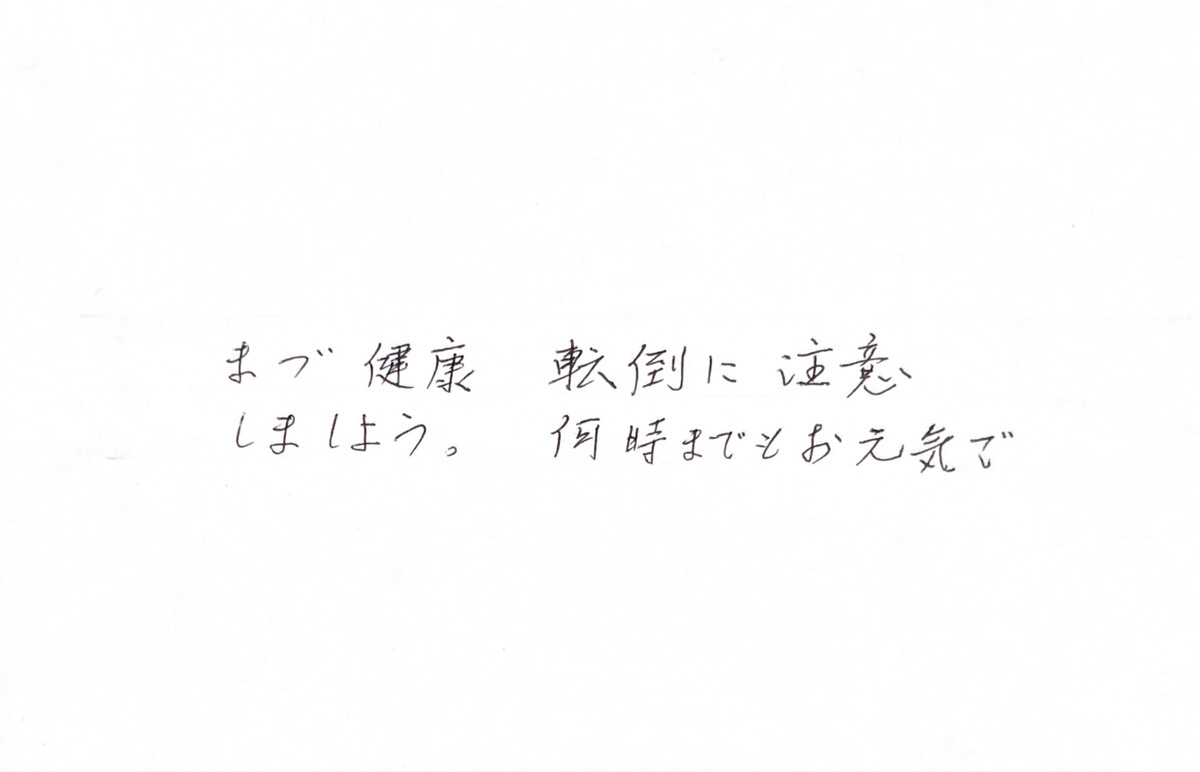 まづ健康　転倒に注意
しましよう。　何時までもお元気で